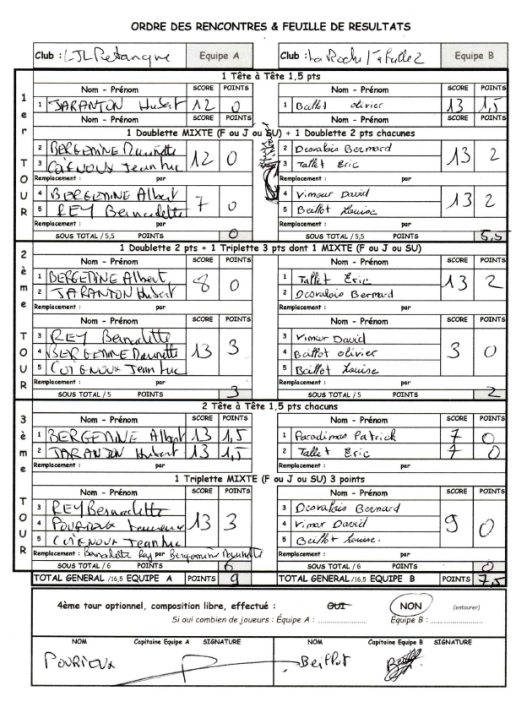 ORDRE DES RENCONTRES & FEUILLE DE RESULTATS
Club : LJL Petanque Equipe A Club : La Roche / Equipe B
1er TOUR
1 Tête à Tête 1,5 pts
Nom - Prénom SCORE POINTS Nom - Prénom SCORE POINTS
1 JARANTON Hubert 12 0 1 Baillot olivier 13 1,5
Nom - Prénom SCORE POINTS Nom - Prénom SCORE POINTS
1 Doublette MIXTE (F ou J ou SU) + 1 Doublette 2 pts chacunes
2 BERGEMINE 12 0 2 Bernard 13 2
3 Jean Luc 3 Tallet Eric
Remplacement : par Remplacement : par
4 BERGEMINE Albert 7 0 4 Vimour David 13 2
5 REY Bernadette 5 Baillot Louise
Remplacement : par Remplacement : par
SOUS TOTAL /5,5 0 SOUS TOTAL /5,5 5,5
2ème TOUR
1 Doublette 2 pts + 1 Triplette 3 pts dont 1 MIXTE (F ou J ou SU)
Nom - Prénom SCORE POINTS Nom - Prénom SCORE POINTS
1 BERGEMINE Albert 8 0 1 Tallet Eric 13 2
2 JARANTON Hubert 2 Bernard
Remplacement : par Remplacement : par
Nom - Prénom SCORE POINTS Nom - Prénom SCORE POINTS
3 REY Bernadette 13 3 3 Vimar David 3 0
4 BERGEMINE 4 Baillot olivier
5 Jean Luc 5 Baillot Louise
Remplacement : par Remplacement : par
SOUS TOTAL /5 3 SOUS TOTAL /5 2
3ème TOUR
2 Tête à Tête 1,5 pts chacuns
Nom - Prénom SCORE POINTS Nom - Prénom SCORE POINTS
1 BERGEMINE Albert 13 1,5 1 Paradimas Patrick 7 0
2 JARANTON Hubert 13 1,5 2 Tallet Eric 7 0
Remplacement : par Remplacement : par
1 Triplette MIXTE (F ou J ou SU) 3 points
Nom - Prénom SCORE POINTS Nom - Prénom SCORE POINTS
3 REY Bernadette 13 3 3 Bernard 9 0
4 POURIOUX 4 Vimar David
5 Jean Luc 5 Baillot Louise.
Remplacement : Bernadette Rey par Bergemine Remplacement : par
SOUS TOTAL /6 6 SOUS TOTAL /6 0
TOTAL GENERAL /16,5 EQUIPE A POINTS 9 TOTAL GENERAL /16,5 EQUIPE B POINTS 7,5
4ème tour optionnel, composition libre, effectué : OUI NON (entourer)
Si oui combien de joueurs : Équipe A : .................... Équipe B : ....................
NOM Capitaine Equipe A SIGNATURE NOM Capitaine Equipe B SIGNATURE
POURIOUX Baillot